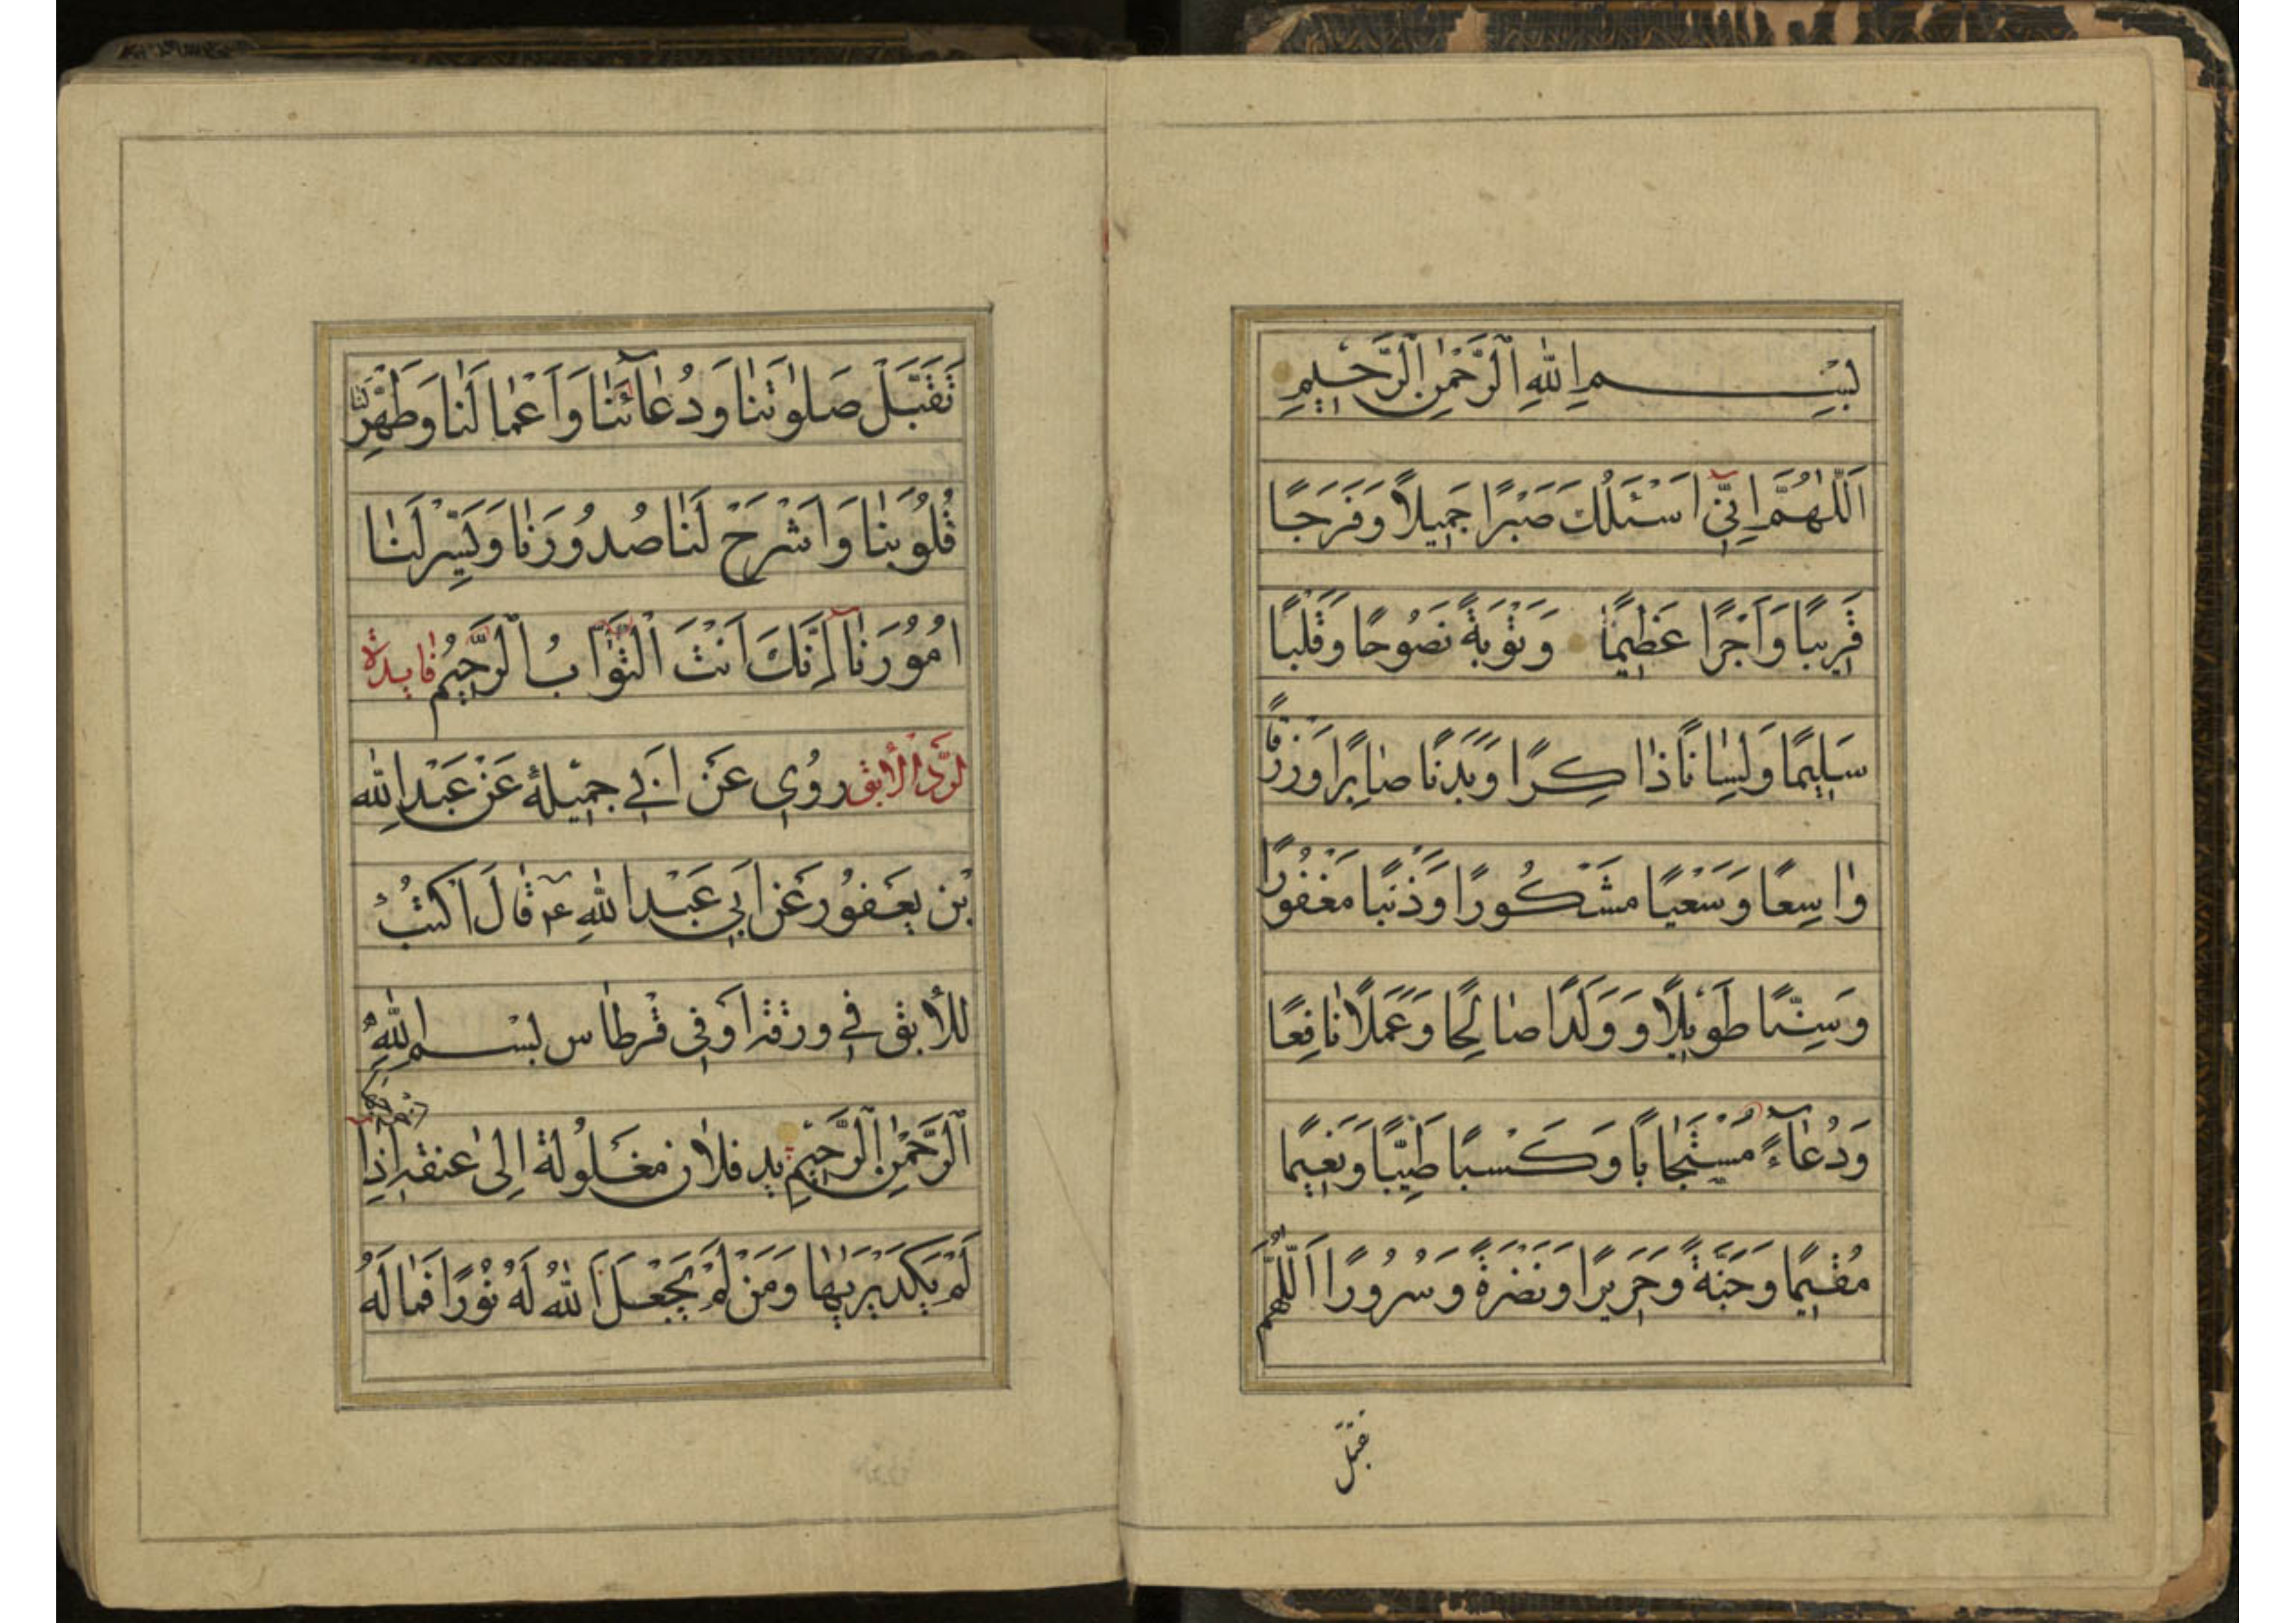 بِسْمِ اللّٰهِ الرَّحْمٰنِ الرَّحِيمِ
اَللّٰهُمَّ اِنِّي اَسْئَلُكَ صَبْرًا جَمِيلًا وَفَرَجًا
قَرِيبًا وَاَجْرًا عَظِيمًا وَتَوْبَةً نَصُوحًا وَقَلْبًا
سَلِيمًا وَلِسَانًا ذَاكِرًا وَبَدَنًا صَابِرًا وَرِزْقًا
وَاسِعًا وَسَعْيًا مَشْكُورًا وَذَنْبًا مَغْفُورًا
وَسِنًّا طَوِيلًا وَوَلَدًا صَالِحًا وَعَمَلًا نَافِعًا
وَدُعَآءً مُسْتَجَابًا وَكَسْبًا طَيِّبًا وَنَعِيمًا
مُقِيمًا وَجَنَّةً وَحَرِيرًا وَنَضْرَةً وَسُرُورًا اَللّٰهُمَّ
تَقَبَّلْ صَلوٰتَنَا وَدُعَآئَنَا وَاَعْمَالَنَا وَطَهِّرْ لَنَا
قُلُوبَنَا وَاشْرَحْ لَنَا صُدُورَنَا وَيَسِّرْ لَنَا
اُمُورَنَا اِنَّكَ اَنْتَ التَّوَّابُ الرَّحِيمُ فايدة
لردّ الابق رُوِيَ عَنْ اَبِي جَمِيلَةَ عَنْ عَبْدِ اللّٰهِ
بْنِ يَعْفُورٍ عَنْ اَبِي عَبْدِ اللّٰهِ ع قَالَ اكْتُبْ
للْآبِقِ فِي وَرَقَةٍ اَوْ فِي قِرْطَاسٍ بِسْمِ اللّٰهِ
الرَّحْمٰنِ الرَّحِيمِ يد فلان مَغْلُولَةٌ اِلىٰ عنقه اِذَا
لَمْ يَكَدْ يَرٰيهَا وَمَنْ لَمْ يَجْعَلِ اللّٰهُ لَهُ نُورًا فَمَا لَهُ